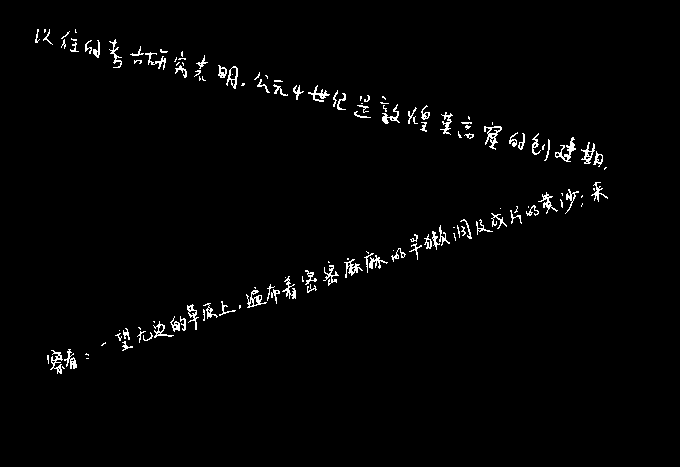 以往的考古研究表明，公元4世纪是敦煌莫高窟的创建期，
察看：一望无边的草原上，遍布着密密麻麻的旱獭洞及成片的黄沙；采